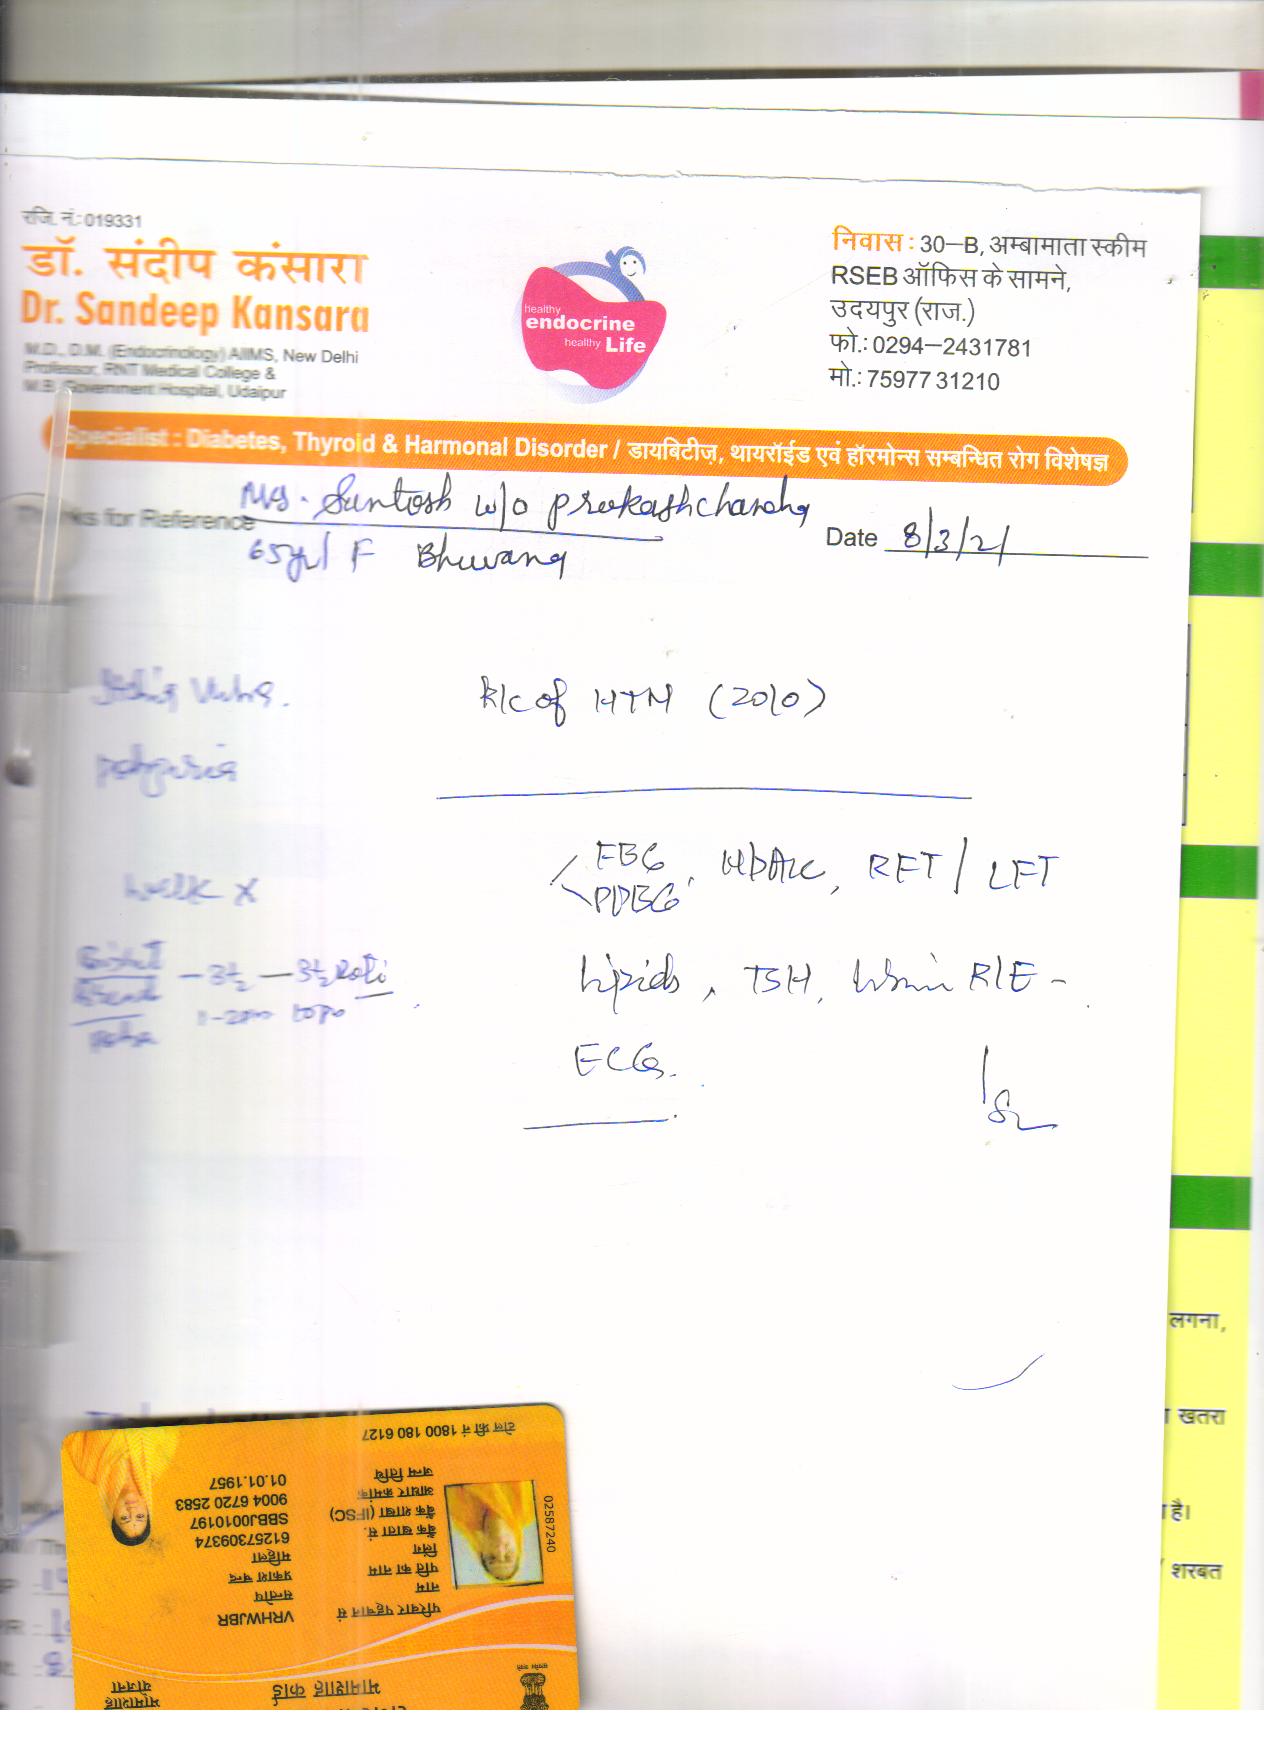 रजि. नं.:019331
डॉ. संदीप कंसारा
Dr. Sandeep Kansara
M.D., D.M. (Endocrinology) AIIMS, New Delhi
Professor, RNT Medical College &
M.B. Government Hospital, Udaipur
healthy
endocrine
healthy Life
निवास : 30–B, अम्बामाता स्कीम
RSEB ऑफिस के सामने,
उदयपुर (राज.)
फो.: 0294–2431781
मो.: 75977 31210
Specialist : Diabetes, Thyroid & Harmonal Disorder / डायबिटीज़, थायरॉईड एवं हॉरमोन्स सम्बन्धित रोग विशेषज्ञ
Thanks for Reference Santosh w/o Prakashchandra
65yr/ F Bhuwana
Date 8/3/21
K/C of HTN (2010)
polyuria
FBG, HbA1c, RFT / LFT
PPBG
walk x
Lipids, TSH, Urine R/E -
Roti
ECG.
लगना,
खतरा
है।
शरबत
टोल फ्री नं 1800 180 6127
जन्म तिथि 01.01.1957
आधार क्रमांक 9004 6720 2583
बैंक शाखा (IFSC) SBBJ0010197
बैंक खाता सं. 61257309374
लिंग महिला
पति का नाम प्रकाश चन्द
नाम सन्तोष
परिवार पहचान सं VRHWJBR
02587240
भामाशाह कार्ड
भामाशाह
योजना